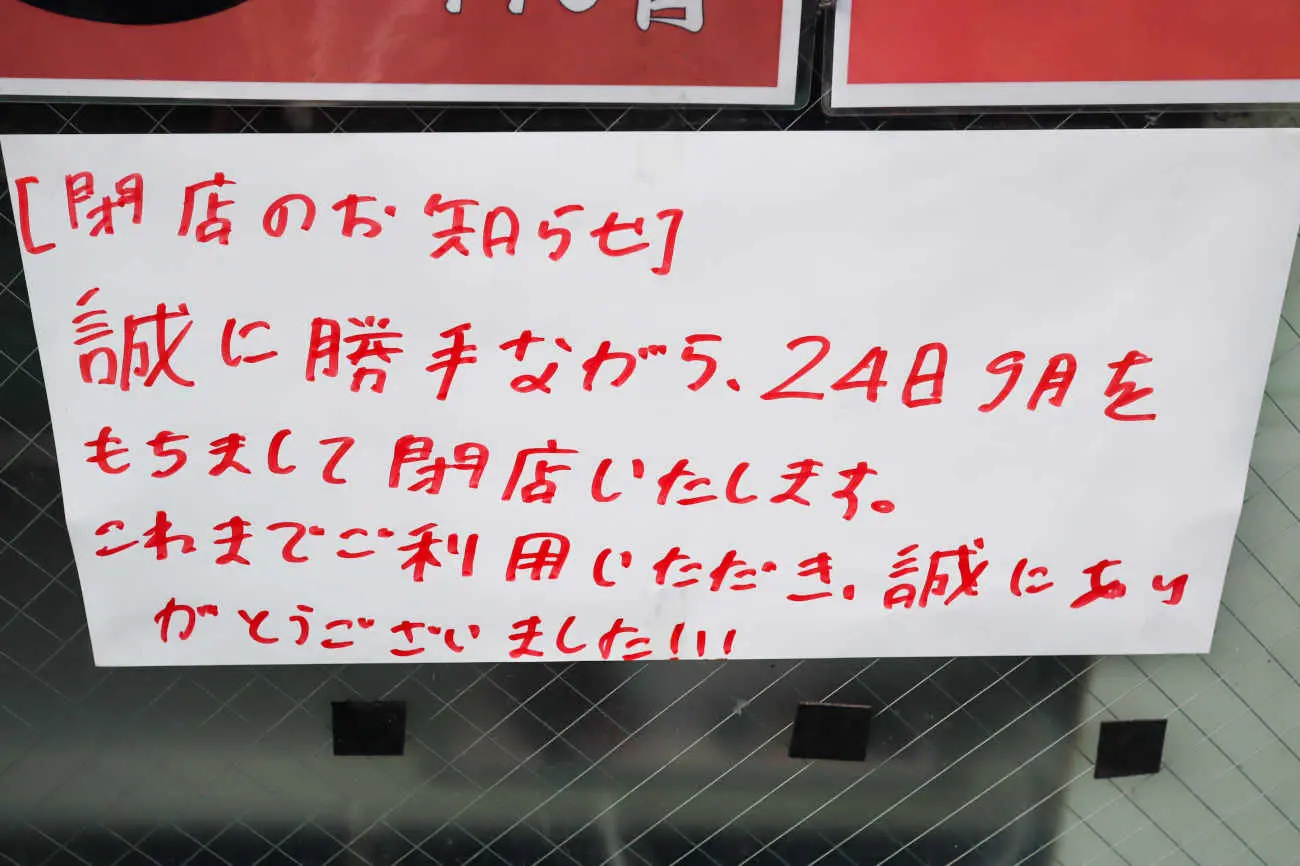 [閉店のお知らせ]
誠に勝手ながら、24日9月を
もちまして閉店いたします。
これまでご利用いただき、誠にあり
がとうございました!!!